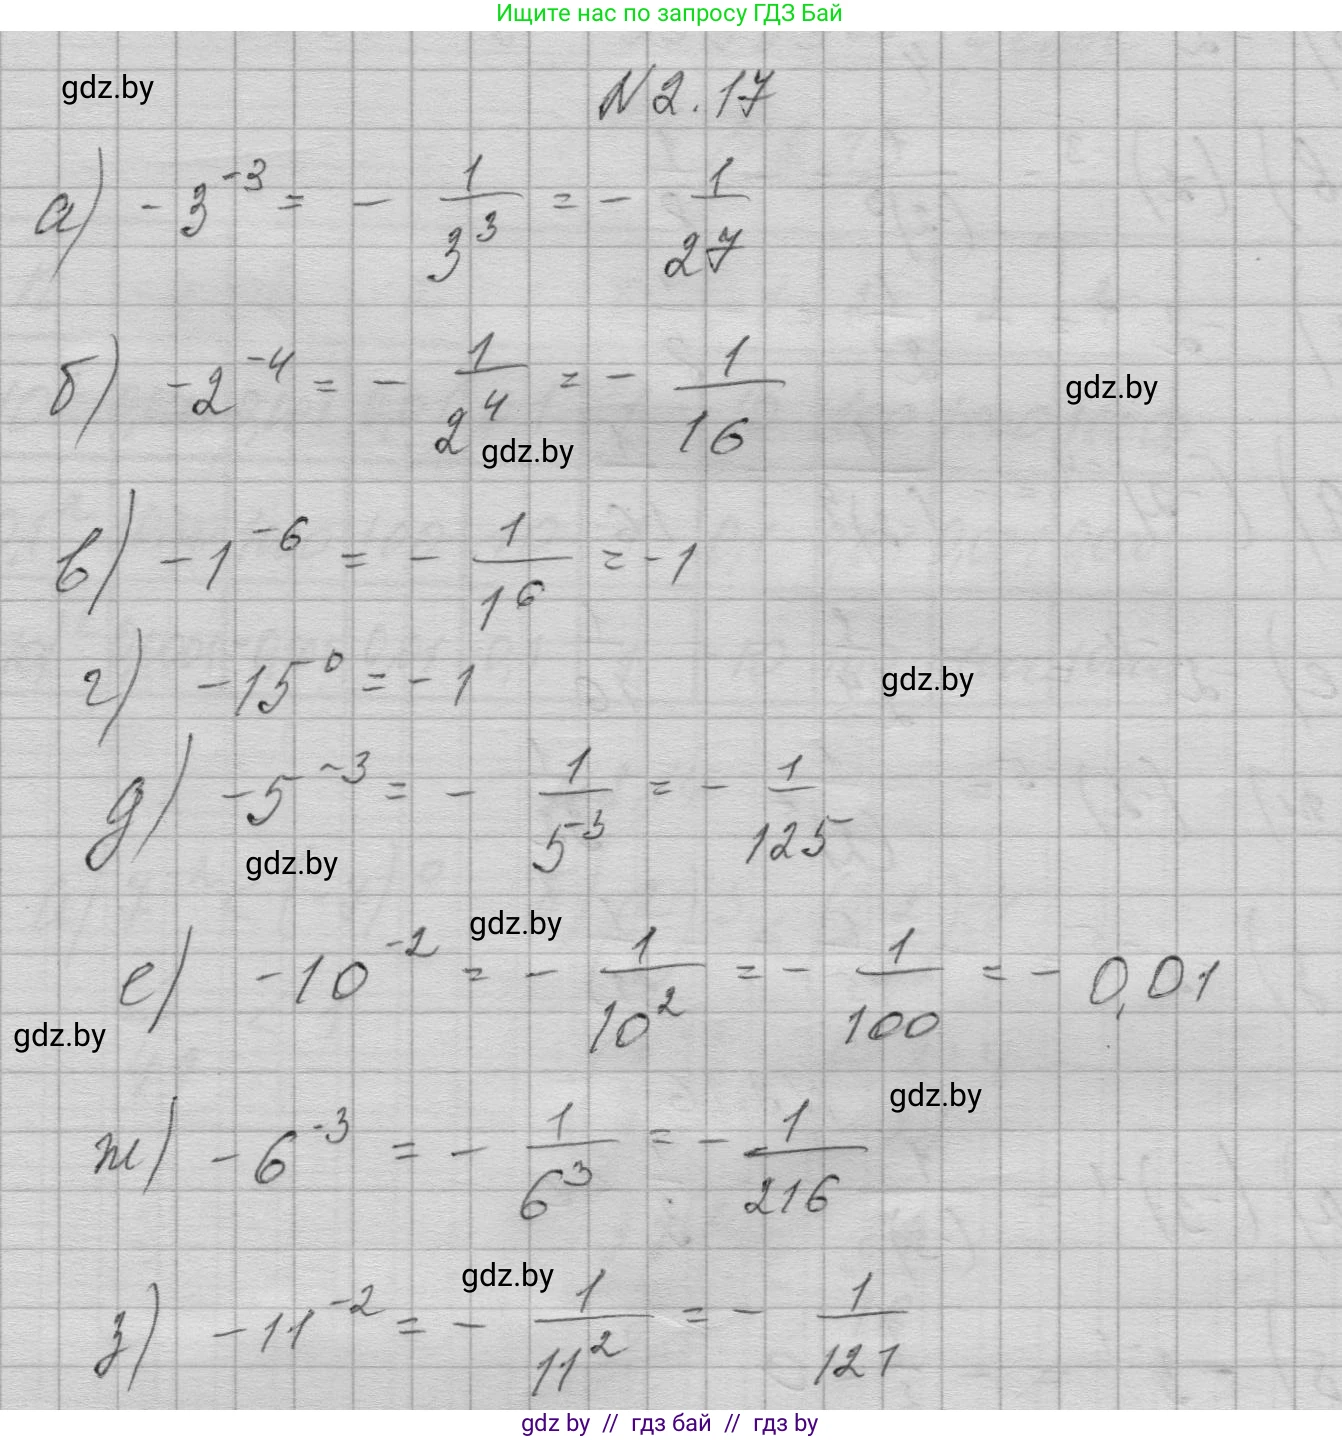 Ищите нас по запросу ГДЗ Бай
gdz.by
N 2.17
а) -3^-3 = - 1/3^3 = - 1/27
б) -2^-4 = - 1/2^4 = - 1/16
gdz.by
gdz.by
в) -1^-6 = - 1/1^6 = -1
г) -15^0 = -1
gdz.by
д) -5^-3 = - 1/5^3 = - 1/125
gdz.by
gdz.by
е) -10^-2 = - 1/10^2 = - 1/100 = - 0,01
gdz.by
gdz.by
ж) -6^-3 = - 1/6^3 = - 1/216
gdz.by
з) -11^-2 = - 1/11^2 = - 1/121
gdz by // гдз бай // гдз by